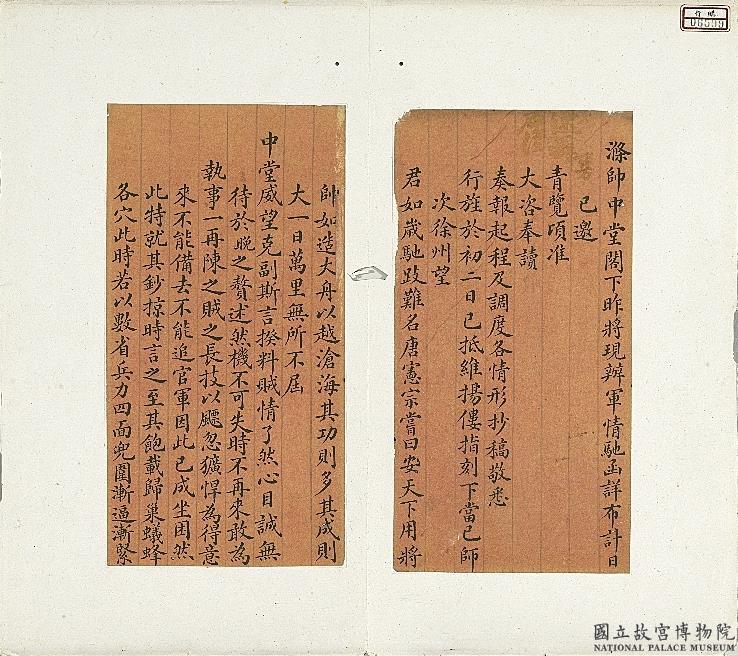 滌帥中堂閣下昨將現辦軍情馳函詳布計日
已邀
青覽頃准
大咨奉讀
奏報起程及調度各情形抄稿敬悉
行旌於初二日已抵維揚僂指刻下當已師
次徐州望
君如歲馳跂難名唐憲宗嘗曰安天下用將
帥如造大舟以越滄海其功則多其成則
大一日萬里無所不屆
中堂威望克副斯言揆料賊情了然心目誠無
待於晚之贅述然機不可失時不再來敢為
執事一再陳之賊之長技以飈忽獷悍為得意
來不能備去不能追官軍因此已成坐困然
此特就其鈔掠時言之至其飽載歸巢蟻蜂
各穴此時若以數省兵力四面兜圍漸逼漸緊
國立故宮博物院
NATIONAL PALACE MUSEUM